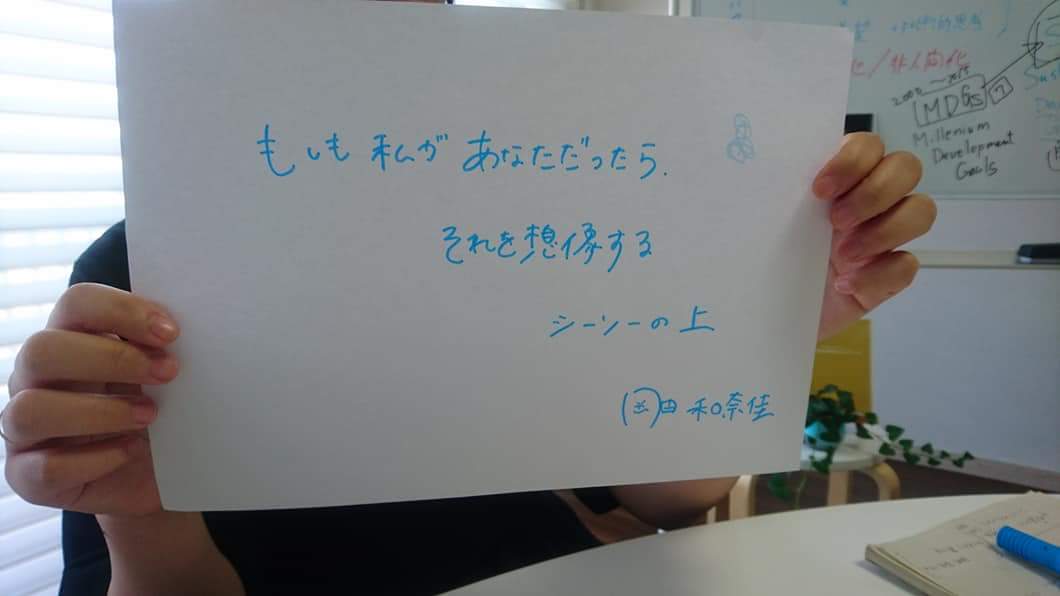 もしも 私が あなただったら.
それを想像する
シーソーの上
田 和奈佳
2000 〜 2015
MDGs
Millenium
Development
Goals